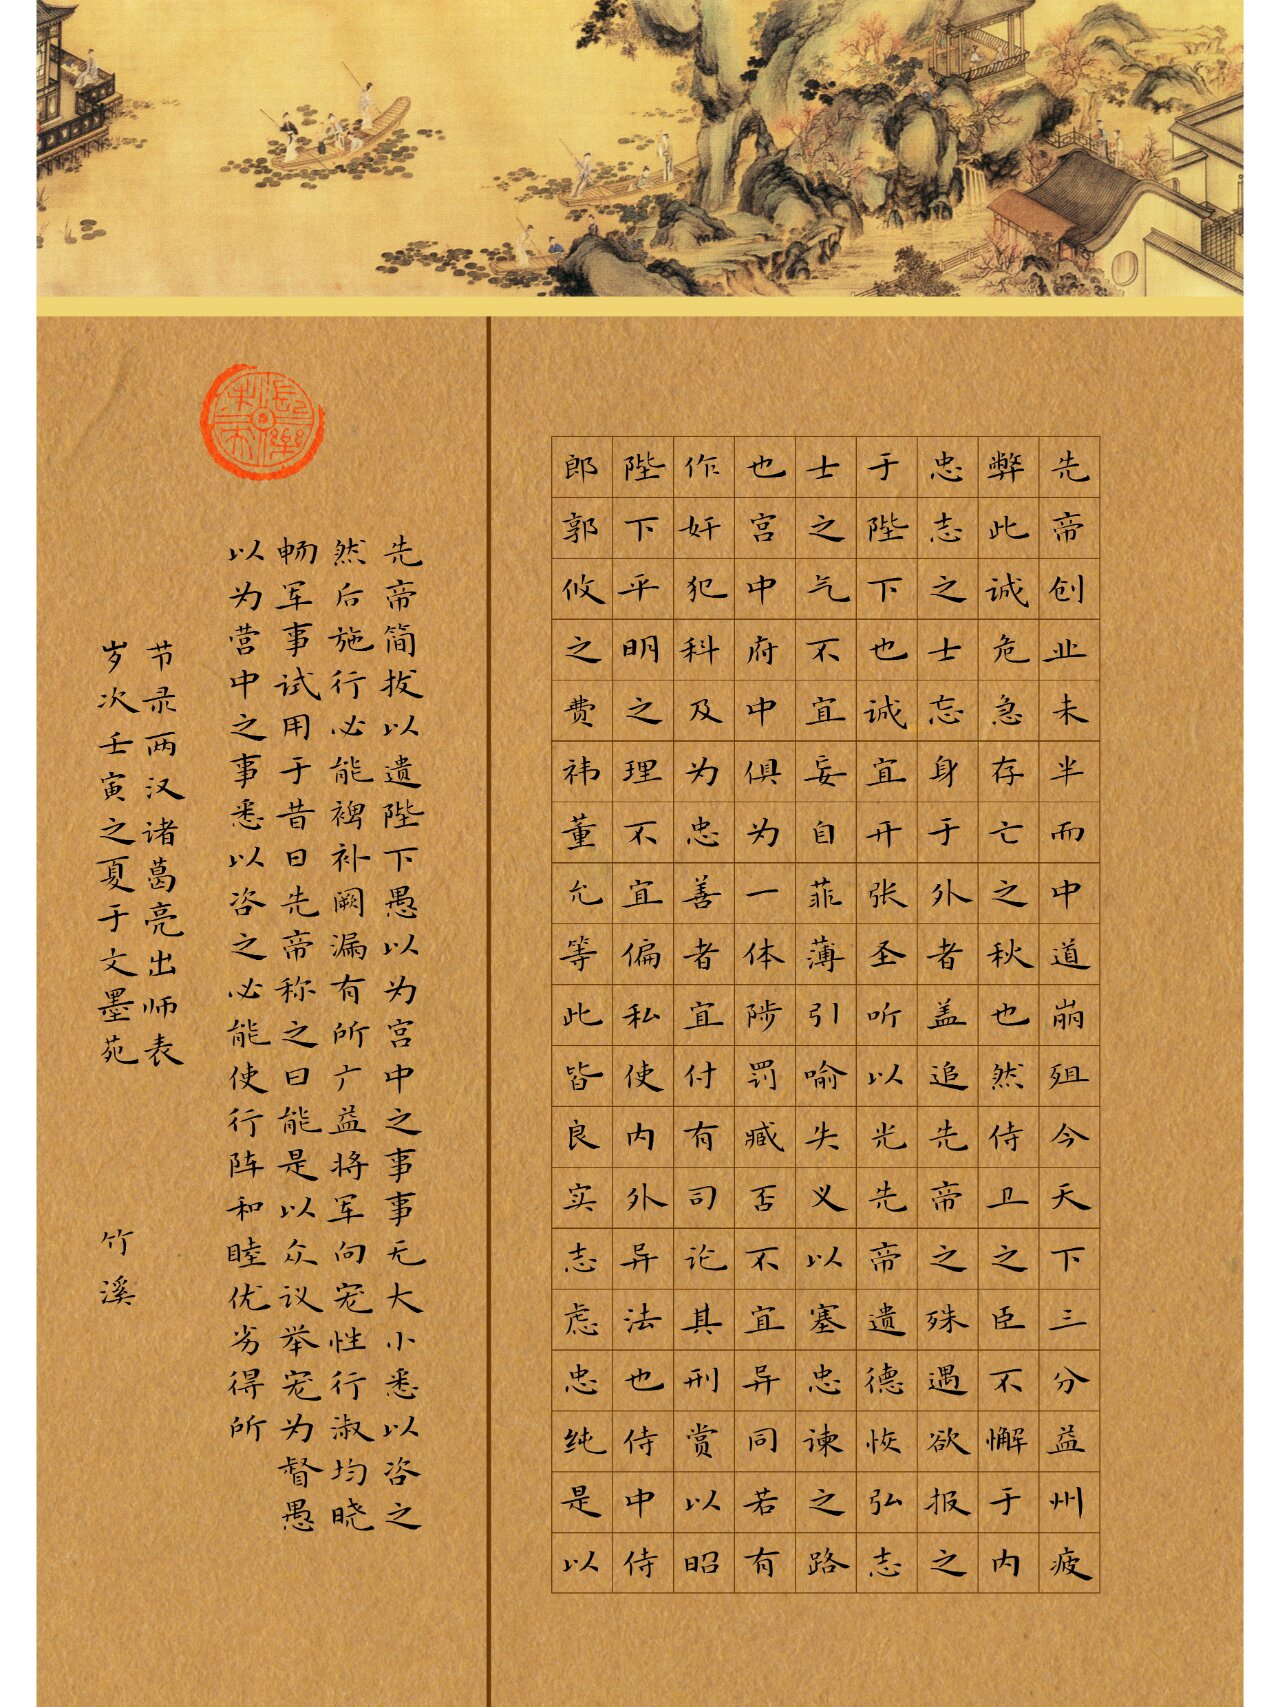 先帝创业未半而中道崩殂今天下三分益州疲
弊此诚危急存亡之秋也然侍卫之臣不懈于内
忠志之士忘身于外者盖追先帝之殊遇欲报之
于陛下也诚宜开张圣听以光先帝遗德恢弘志
士之气不宜妄自菲薄引喻失义以塞忠谏之路
也宫中府中俱为一体陟罚臧否不宜异同若有
作奸犯科及为忠善者宜付有司论其刑赏以昭
陛下平明之理不宜偏私使内外异法也侍中侍
郎郭攸之费祎董允等此皆良实志虑忠纯是以
先帝简拔以遗陛下愚以为宫中之事事无大小悉以咨之
然后施行必能裨补阙漏有所广益将军向宠性行淑均晓
畅军事试用于昔日先帝称之曰能是以众议举宠为督愚
以为营中之事悉以咨之必能使行阵和睦优劣得所
节录两汉诸葛亮出师表
岁次壬寅之夏于文墨苑 竹溪
長樂未央